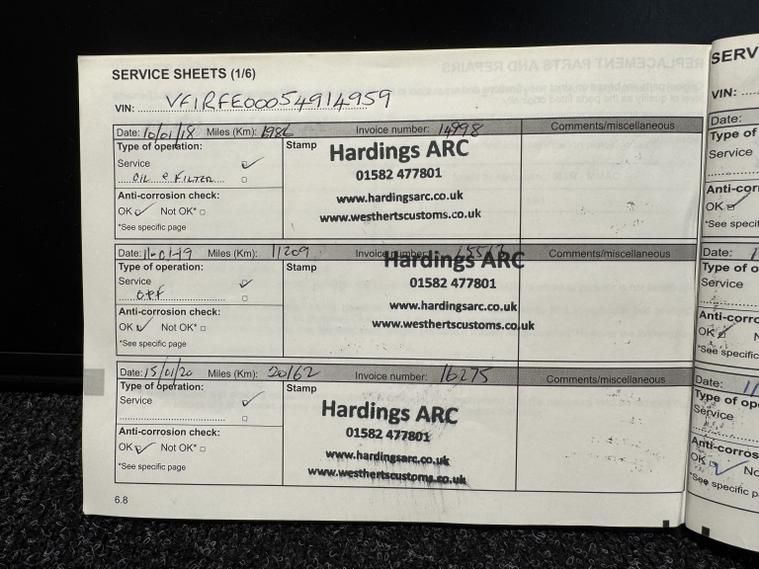 SERVICE SHEETS (1/6)
VIN: VF1RFE00054914959
Date: 10/01/18 Miles (Km): 1986 Invoice number: 14998 Comments/miscellaneous
Type of operation: Stamp
Service
OIL & FILTER
Anti-corrosion check:
OK Not OK*
*See specific page
Hardings ARC
01582 477801
www.hardingsarc.co.uk
www.westhertscustoms.co.uk
Date: 11-01-19 Miles (Km): 11209 Invoice number: Comments/miscellaneous
Type of operation: Stamp
Service
O&F
Anti-corrosion check:
OK Not OK*
*See specific page
Hardings ARC
01582 477801
www.hardingsarc.co.uk
www.westhertscustoms.co.uk
Date: 15/01/20 Miles (Km): 20162 Invoice number: 16275 Comments/miscellaneous
Type of operation: Stamp
Service
Anti-corrosion check:
OK Not OK*
*See specific page
Hardings ARC
01582 477801
www.hardingsarc.co.uk
www.westhertscustoms.co.uk
6.8
SERV
VIN:
Date:
Type of
Service
Anti-cor
OK
*See specif
Date:
Type of o
Service
Anti-corro
OK
*See specific
Date:
Type of op
Service
Anti-corros
OK No
*See specific p